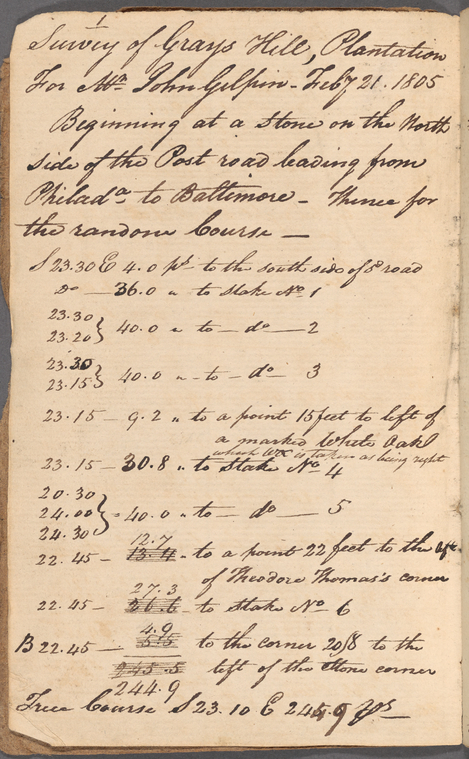 1
Survey of Grays Hill, Plantation
For Mr. John Gilpin - Feby 21. 1805
Beginning at a Stone on the North
side of the Post road leading from
Philada. to Baltimore - Thence for
the random Course -
S 23.30 E 4.0 ps to the south side of sd road
Do - 36.0 " to Stake No. 1
23.30
23.20 } 40.0 " to - do - 2
23.30
23.15 } 40.0 " to - do - 3
23.15 - 9.2 " to a point 15 feet to left of
a marked White Oak
which WO is taken as being right
23.15 - 30.8 " to Stake No 4
20.30
24.00 } 40.0 " to - do - 5
24.30
12.7
22.45 - 13.4 - to a point 22 feet to the left
of Theodore Thomas's corner
27.3
22.45 - 26.6 - to Stake No 6
4.9
B 22.45 - 5.5 to the corner 20/8 to the
245.5 left of the Stone corner
244.9
True Course S 23.10 E 244.9 ps